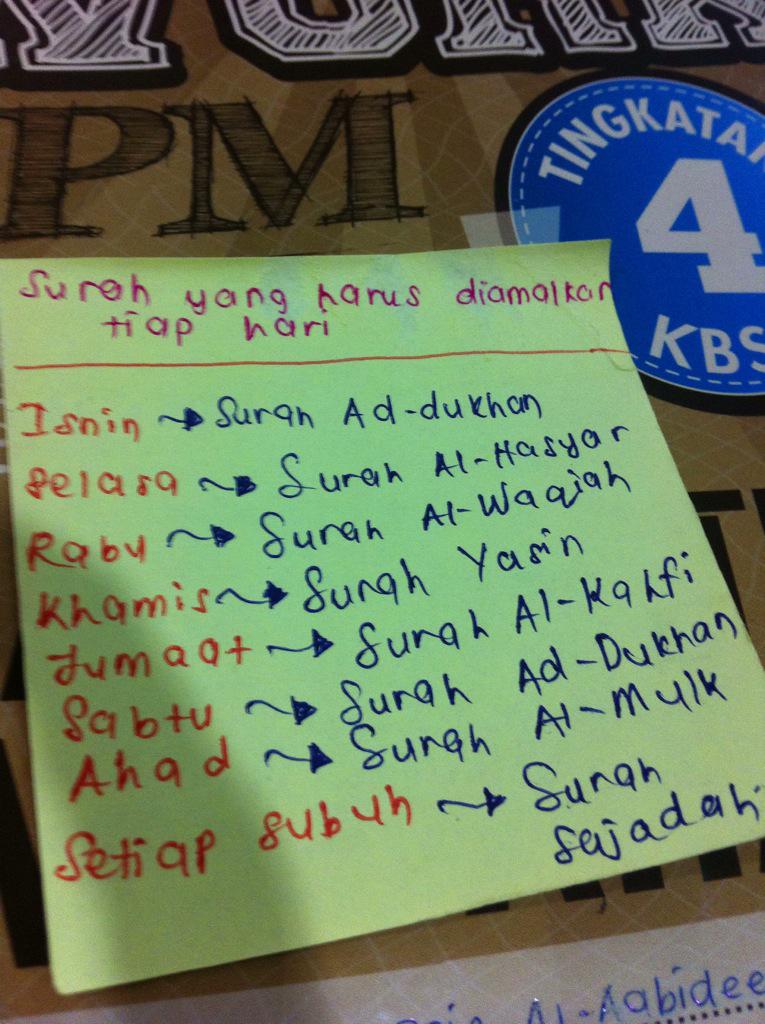 PM
TINGKATAN
4
KBS
Surah yang harus diamalkan
tiap hari
Isnin → Surah Ad-dukhan
Selasa → Surah Al-Hasyar
Rabu → Surah Al-Waqiah
Khamis → Surah Yasin
Jumaat → Surah Al-Kahfi
Sabtu → Surah Ad-Dukhan
Ahad → Surah Al-Mulk
Setiap subuh → Surah
Sajadah
Al-Aabidee